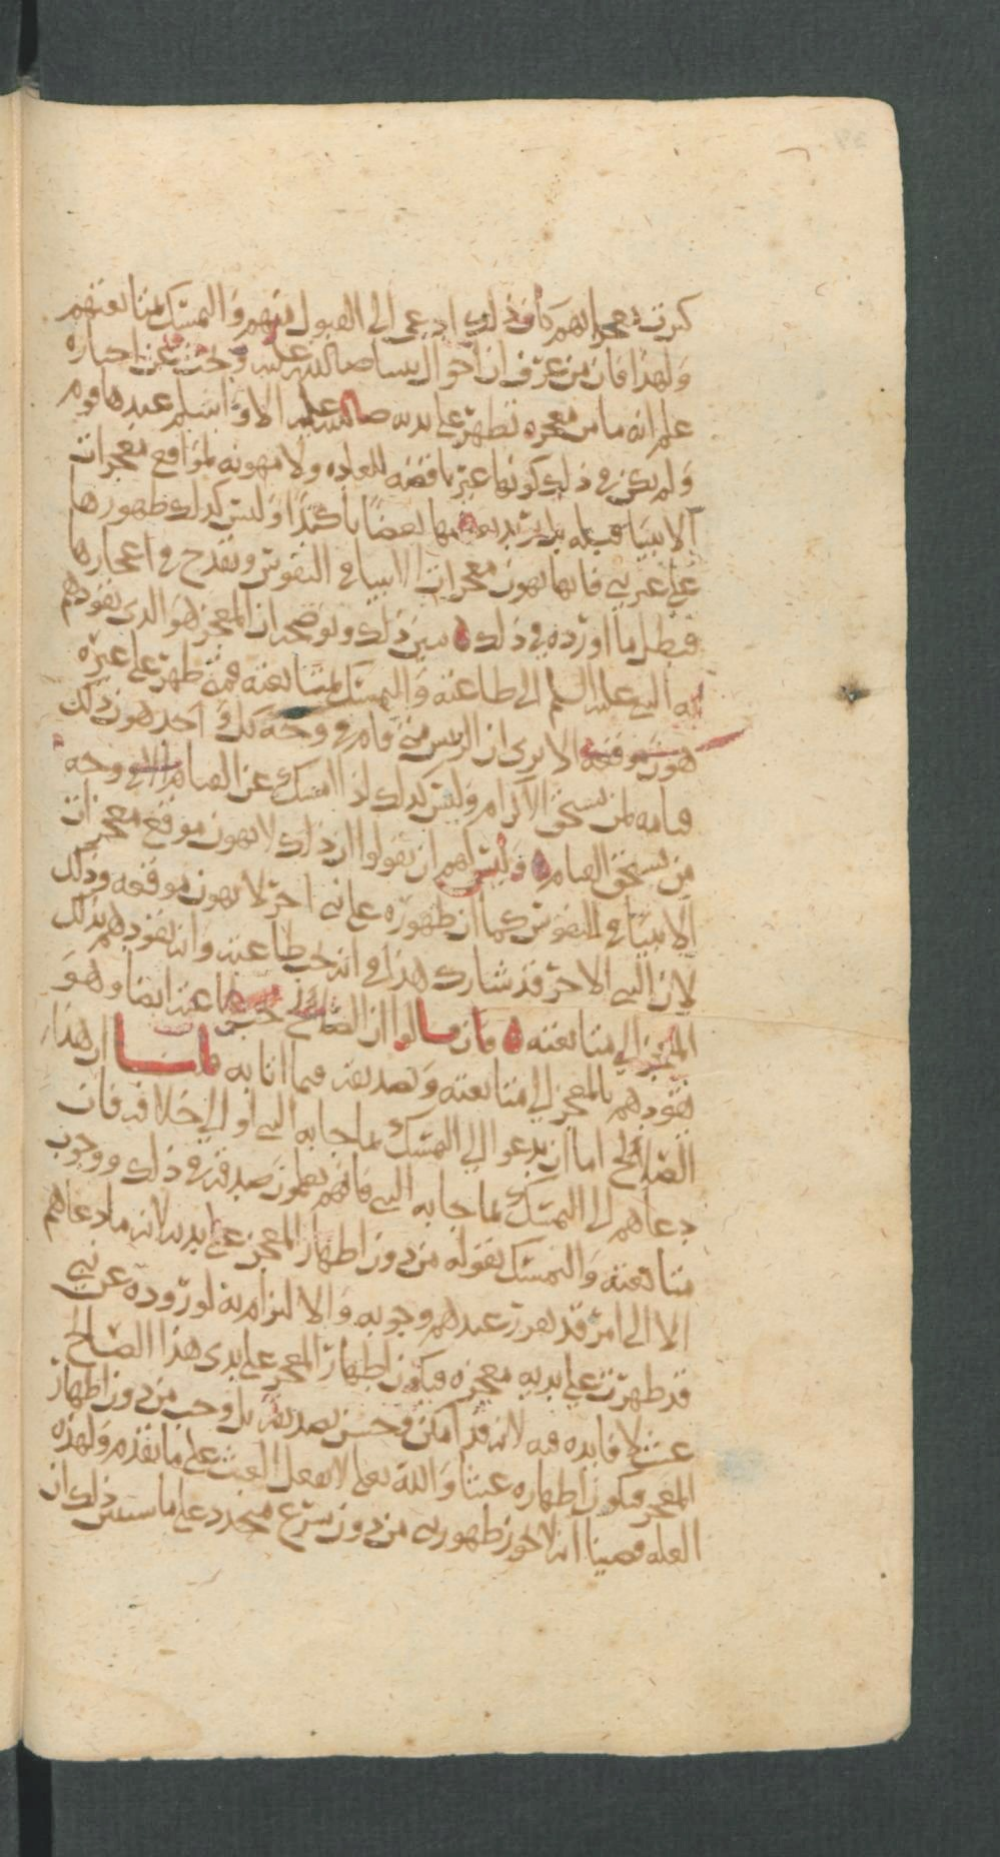 كثرت معجزاتهم كان ذلك ادعى الى القبول منهم والتمسك بمتابعتهم
ولهذا فان من عرف احوال نبينا صلى الله عليه وبحث عن اخباره
علم انه ما من معجزه تظهر على يديه صلى الله عليه الا وا سلم عندها قوم
ولم يكن في ذلك كونها غير ناقضه للعاده ولا مهونه لمواقع معجزات
الانبيا قبله بعضها بعضا تاكيدا وليس كذلك ظهورها
على غير نبي فانها تهون معجزات الانبيا في النفوس وتقدح في اعجازها
فبطل ما اورده في ذلك يبين ذلك ويوضحه ان المعجز هو الذي يقودهم
به النبي عليه السلم الى طاعته والتمسك بمتابعته فمتى ظهر على غيره
هون موقعه الا ترى ان الرئيس متى قام في وجه كل احد هون ذلك
قيامه لمن يستحق الاكرام وليس كذلك اذا امسك عن القيام الا في وجه
من يستحق القيام وليس لهم ان يقولوا ان ذلك لا يهون موقع معجزات
الانبيا في النفوس كما ان ظهوره على نبي اخر لا يهون موقعه وذلك
لان النبي الاخر قد شارك هذا في انه تجب طاعته وانه يقودهم بذلك
المعجز الى متابعته فان قالوا ان الصالح تجب طاعته ايضا وهو
يقودهم بالمعجز الى متابعته وتصديقه فيما اتا به قلنا ان هذا
الصالح اما ان يدعو الى التمسك بما جا به النبي او الى خلافه فان
دعاهم الى التمسك بما جا به النبي فانهم يعلمون صدقه في ذلك ووجوب
متابعته والتمسك بقوله من دون اظهار المعجز على يديه لانه ما دعاهم
الا الى امر قد تقرر عندهم وجوبه والالتزام به لوروده عن نبي
قد ظهرت على يديه معجزه فيكون اظهار المعجز على يدي هذا الصالح
عبث لا فايده فيه لانه قد امكن وحسن تصديقه بل وجب من دون اظهار
المعجز فيكون اظهاره عبثا والله تعلى لا يفعل العبث على ما تقدم ولهذه
العله قضينا انه لا يجوز ظهور نبي من دون شرع متجدد على ما سنبين ذلك ان